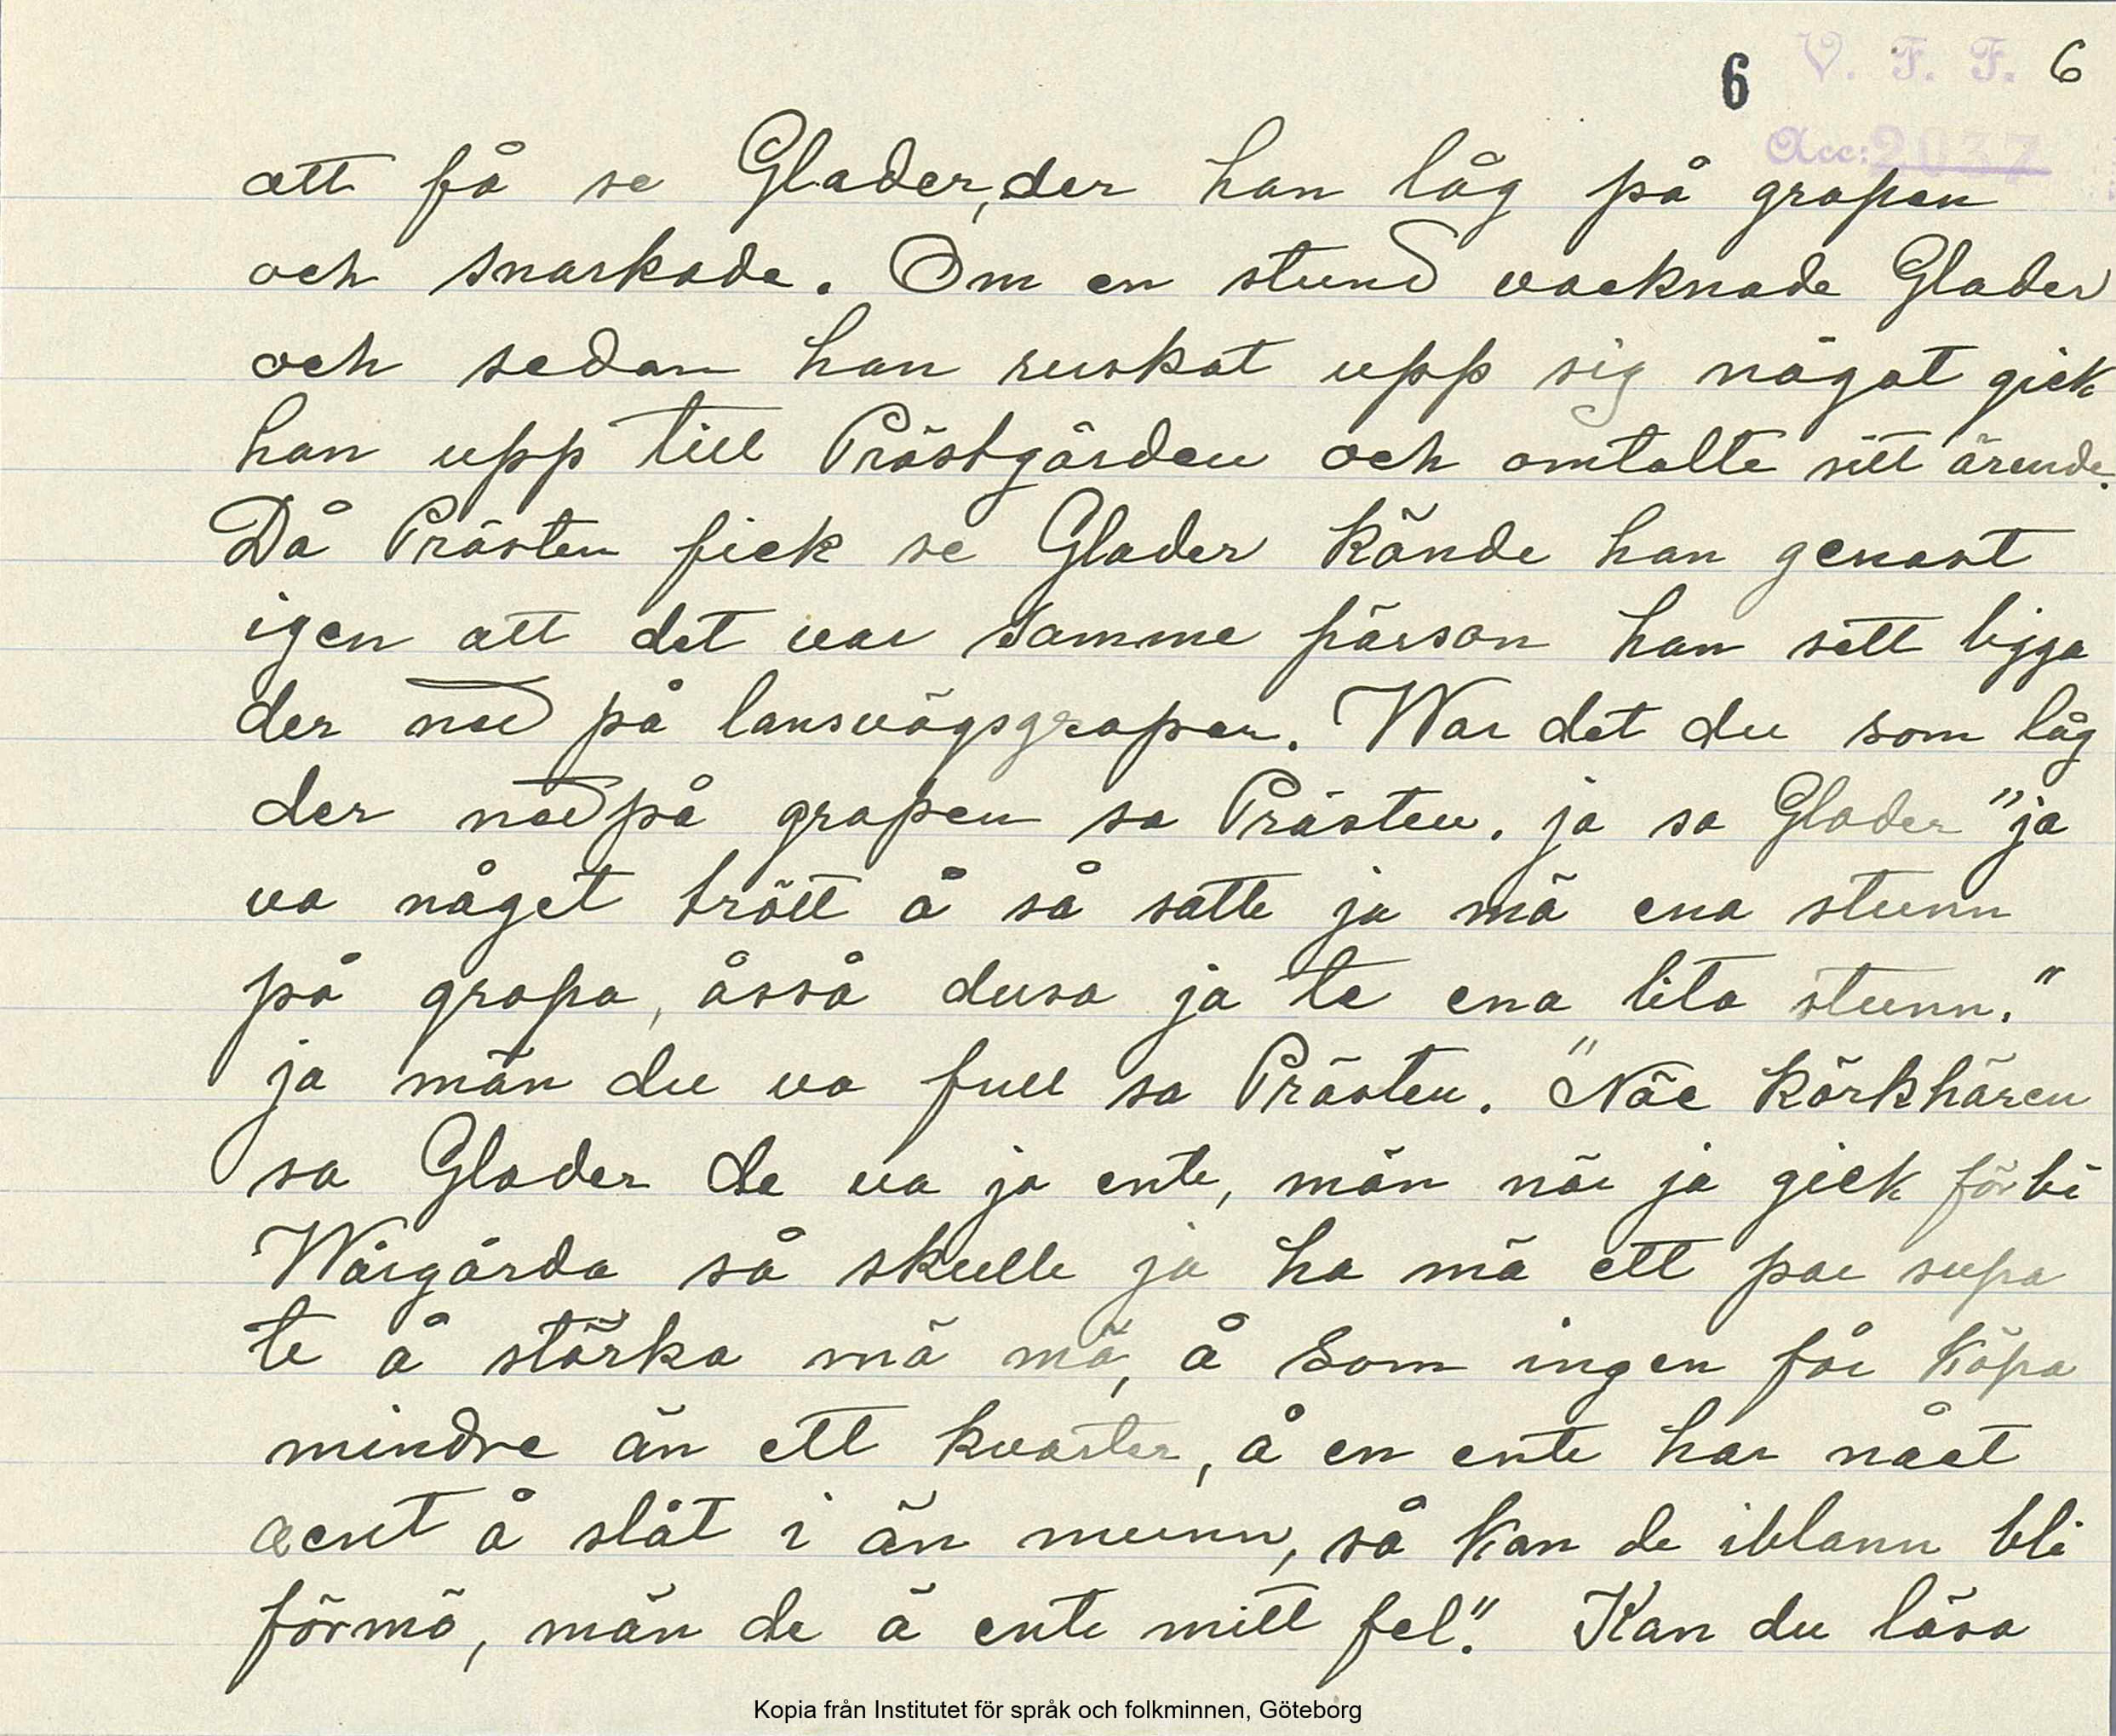 6 V. F. F. 6
Acc: 2037
att få se Glader, der han låg på grapen
och snarkade. Om en stund vacknade Glader
och sedan han ruskat upp sig något gick
han upp till Prästgården och omtalte sitt ärende.
Då Prästen fick se Glader kände han genast
igen att det var samme pärson han sett ligga
der ned på lansvägsgrapen. War det du som låg
der ned på grapen sa Prästen. ja sa Glader "ja
va något trött å så satte ja mä ena stunn
på grapa, åsså dusa ja te ena lita stunn."
ja män du va full sa Prästen. "Näe körkhären
sa Glader de va ja ente, män när ja gick förbi
Wårgårda så skulle ja ha mä ett par supa
te å stärka mä mä, å som ingen får köpa
mindre än ett kvarter, å en ente har nået
aent å slåt i än munn, så kan de iblann bli
förmö, män de ä ente mitt fel". Kan du läsa
Kopia från Institutet för språk och folkminnen, Göteborg